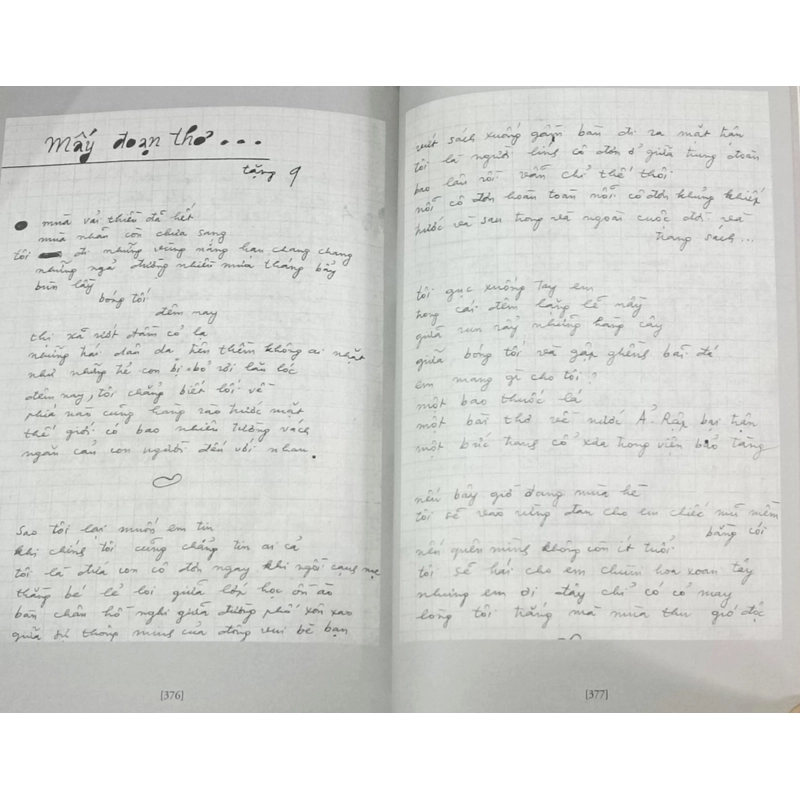 Mấy đoạn thơ...
tặng 9
mùa vải thiều đã hết
mùa nhãn còn chưa sang
tôi đi những vùng nắng han chang chang
những ngả đường nhiều mưa tháng bảy
bùn lầy
bóng tối
đêm nay
thị xã rướt đẫm cỏ lạ
những trái dâu da trên thềm không ai nhặt
như những hè con bị bỏ rơi lăn lóc
đêm nay, tôi chẳng biết lối về
phía nào cũng hàng rào trước mặt
thế giới có bao nhiêu tường vách
ngăn cản con người đến với nhau.
Sao tôi lại muốn em tin
khi chính tôi cũng chẳng tin ai cả
tôi là đứa con cô đơn ngay khi ngồi cạnh mẹ
thằng bé lẻ loi giữa lớp học ồn ào
bàn chân hồ nghi giữa đường phố xôn xao
giữa sự thông minh của đông vui bè bạn
[376]
vứt sách xuống gầm bàn đi ra mặt trận
tôi là người lính cô đơn ở giữa trung đoàn
bao lâu rồi vẫn chỉ thế thôi
nỗi cô đơn hoàn toàn nỗi cô đơn khủng khiếp
trước và sau trong và ngoài cuộc đời và
trang sách...
tôi gục xuống tay em
trong cái đêm lặng lẽ này
giữa run rẩy những hàng cây
giữa bóng tối và gập ghềnh bãi đá
em mang gì cho tôi?
một bao thuốc lá
một bài thơ về nước Ả Rập bại trận
một bức tranh cổ xưa trong viện bảo tàng
nếu bây giờ đang mùa hè
tôi sẽ vào rừng đan cho em chiếc mũ mềm
bằng cói
nếu quên mình không còn ít tuổi
tôi sẽ hái cho em chùm hoa xoan tây
nhưng em ơi đây chỉ có cỏ may
lòng tôi trắng mà mùa thu gió độc
[377]